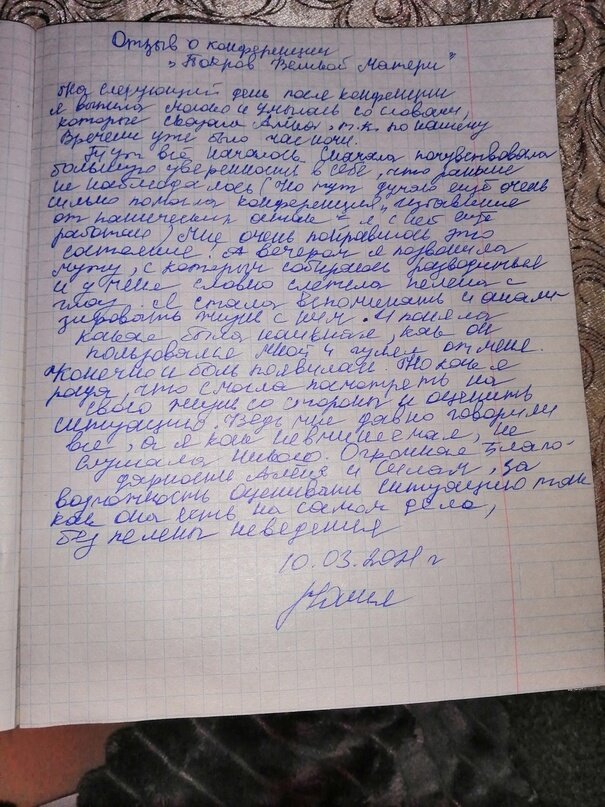 Отзыв о конференции
"Покров Великой Матери"
На следующий день после конференции
я выпила молоко и умылась со словами,
которые сказала Алтея, т.к. по нашему
времени уже было час ночи.
Тут всё началось. Сначала почувствовала
большую уверенность в себе, что раньше
не наблюдалось (но тут думаю ещё очень
сильно помогла конференция "избавление
от панических атак" - я с ней ещё
работаю). Мне очень понравилось это
состояние. А вечером я позвонила
мужу, с которым собираюсь разводиться
и у меня словно слетела пелена с
глаз. Я стала вспоминать и анали-
зировать жизнь с ним. И поняла
какая была наивная, как он
пользовался мной и гулял от меня.
Конечно и боль появилась. Но как я
рада, что смогла посмотреть на
свою жизнь со стороны и оценить
ситуацию. Ведь мне давно говорили
все, а я как невменяемая, не
слушала никого. Огромная Благо-
дарность Алтея и Силам, за
возможность оценивать ситуацию так
как она есть на самом деле,
без пелены неведения
10.03.2021 г